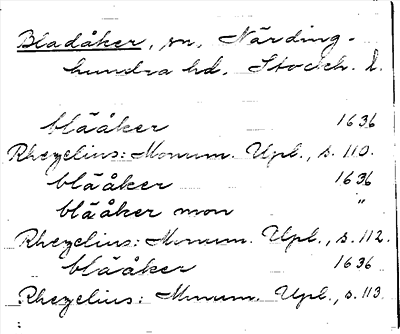 Bladåker, sn, Närding-
hundra hd, Stockh. l.
blååker 1636
Rhezelius: Monum. Upl., s. 110.
blååker 1636
blååker mon "
Rhezelius: Monum. Upl., s. 112.
blååker 1636
Rhezelius: Monum. Upl., s. 113.